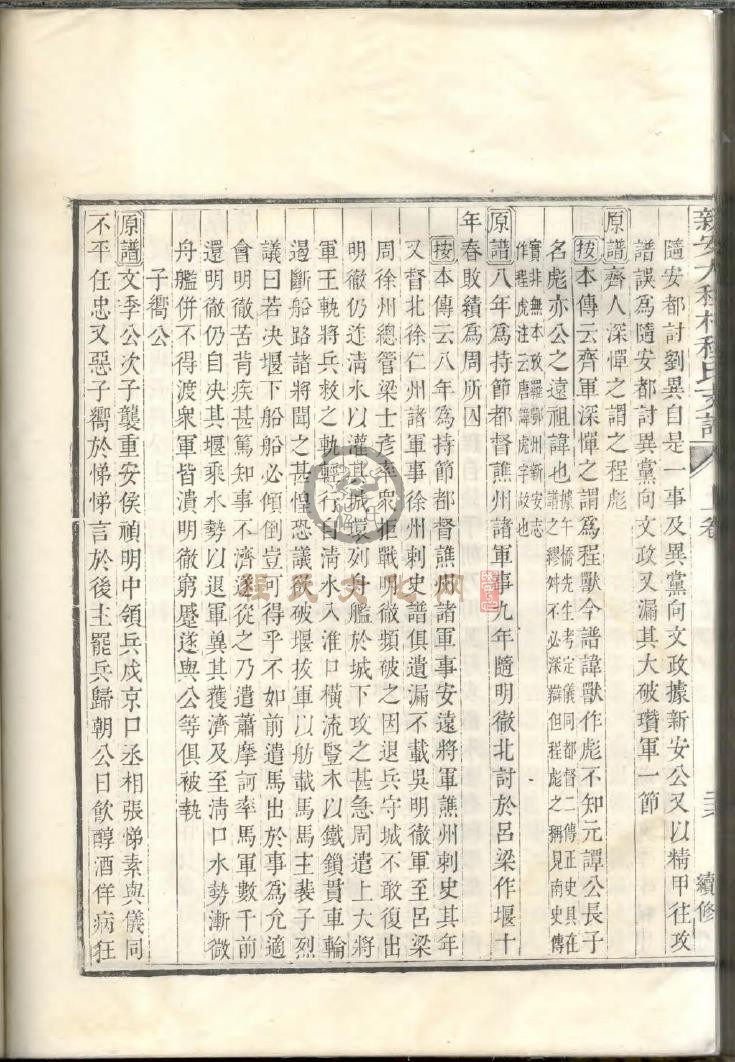 新安大程村程氏支譜
上卷
續修
隨安都討劉異自是一事及異黨向文政據新安公又以精甲往攻
譜誤爲隨安都討異黨向文政又漏其大破瓚軍一節
原譜齊人深憚之謂之程彪
按本傳云齊軍深憚之謂爲程獸今譜諱獸作彪不知元譚公長子
名彪亦公之遠祖諱也據午橋先生考定儀同都督二傳正史具在
譜之繆舛不必深辯但程彪之稱見南史傳
實非無本攷羅鄂州新安志
作程虎注云唐諱虎字故也
原譜八年爲持節都督譙州諸軍事九年隨明徹北討於呂梁作堰十
年春敗績爲周所囚
按本傳云八年爲持節都督譙州諸軍事安遠將軍譙州刺史其年
又督北徐仁州諸軍事徐州刺史譜俱遺漏不載吳明徹軍至呂梁
周徐州總管梁士彥率衆拒戰明徹頻破之因退兵守城不敢復出
明徹仍迮淸水以灌其城環列舟艦於城下攻之甚急周遣上大將
軍王軌將兵救之軌輕行自淸水入淮口橫流豎木以鐵鎖貫車輪
遏斷船路諸將聞之甚惶恐議欲破堰拔軍以舫載馬馬主裴子烈
議曰若决堰下船船必傾倒豈可得乎不如前遣馬出於事爲允適
會明徹苦背疾甚篤知事不濟遂從之乃遣蕭摩訶率馬軍數千前
還明徹仍自决其堰乘水勢以退軍兾其獲濟及至淸口水勢漸微
舟艦併不得渡衆軍皆潰明徹窮蹙遂與公等俱被執
子嚮公
原譜文季公次子襲重安侯禎明中領兵戍京口丞相張悌素與儀同
不平任忠又惡子嚮於悌悌言於後主罷兵歸朝公日飮醇酒佯病狂